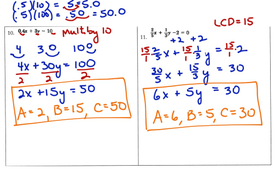 (.5)(10) = .5.5.0
(.5)(100) = .50. = 50.0
10. 0.4x + .3y - 10 mult by 10
4 30 100
4x + 30y = 100
2 2 2
2x + 15y = 50
A = 2, B = 15, C = 50
LCD = 15
11. 2/5 x + 1/3 y - 2 = 0
+2 +2
15/1 · 2/5 x + 15/1 · 1/3 y = 15/1 · 2
30/5 x + 15/3 y = 30
6x + 5y = 30
A = 6, B = 5, C = 30